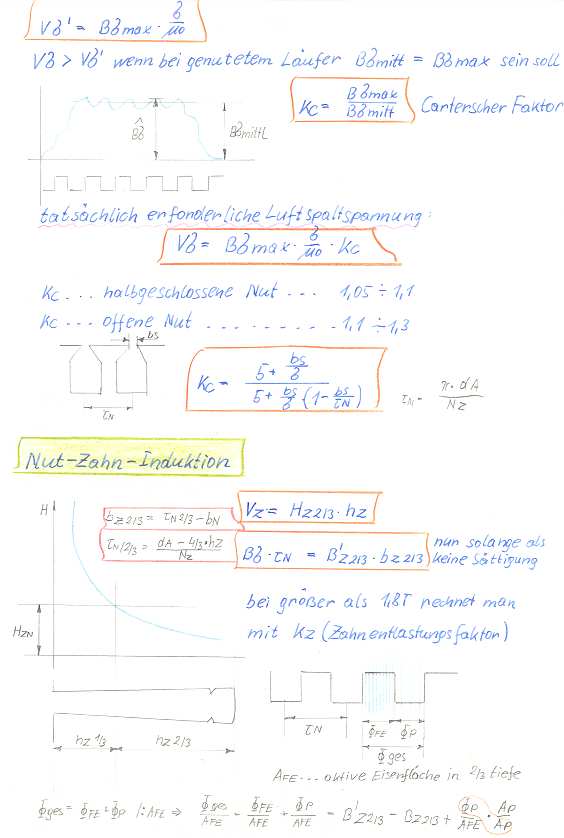 Vδ' = Bδmax · δ/μ0
Vδ > Vδ' wenn bei genutetem Läufer Bδmitt = Bδmax sein soll
Kc = Bδmax/Bδmitt Carterscher Faktor
B̂δ Bδmittl
tatsächlich erforderliche Luftspaltspannung:
Vδ = Bδmax · δ/μ0 · Kc
Kc ... halbgeschlossene Nut ... 1,05 ÷ 1,1
Kc ... offene Nut ......... 1,1 ÷ 1,3
bs
τN
Kc = (5 + bs/δ)/(5 + bs/δ (1 - bs/τN))
τN = π · dA/Nz
Nut-Zahn-Induktion
H
bz2/3 = τN2/3 - bN
Vz = Hz2/3 · hz
τN/2/3 = dA - 4/3 · hz/Nz
Bδ · τN = B'z2/3 · bz2/3
nun solange als
keine Sättigung
bei größer als 1,8T rechnet man
mit Kz (Zahnentlastungsfaktor)
HZN
τN ΦFE ΦP
Φges
hz 1/3 hz 2/3
AFE ... aktive Eisenfläche in 2/3 tiefe
Φges = ΦFE + ΦP |: AFE ⇒ Φges/AFE = ΦFE/AFE + ΦP/AFE = B'z2/3 = Bz2/3 + ΦP/AFE · AP/AP